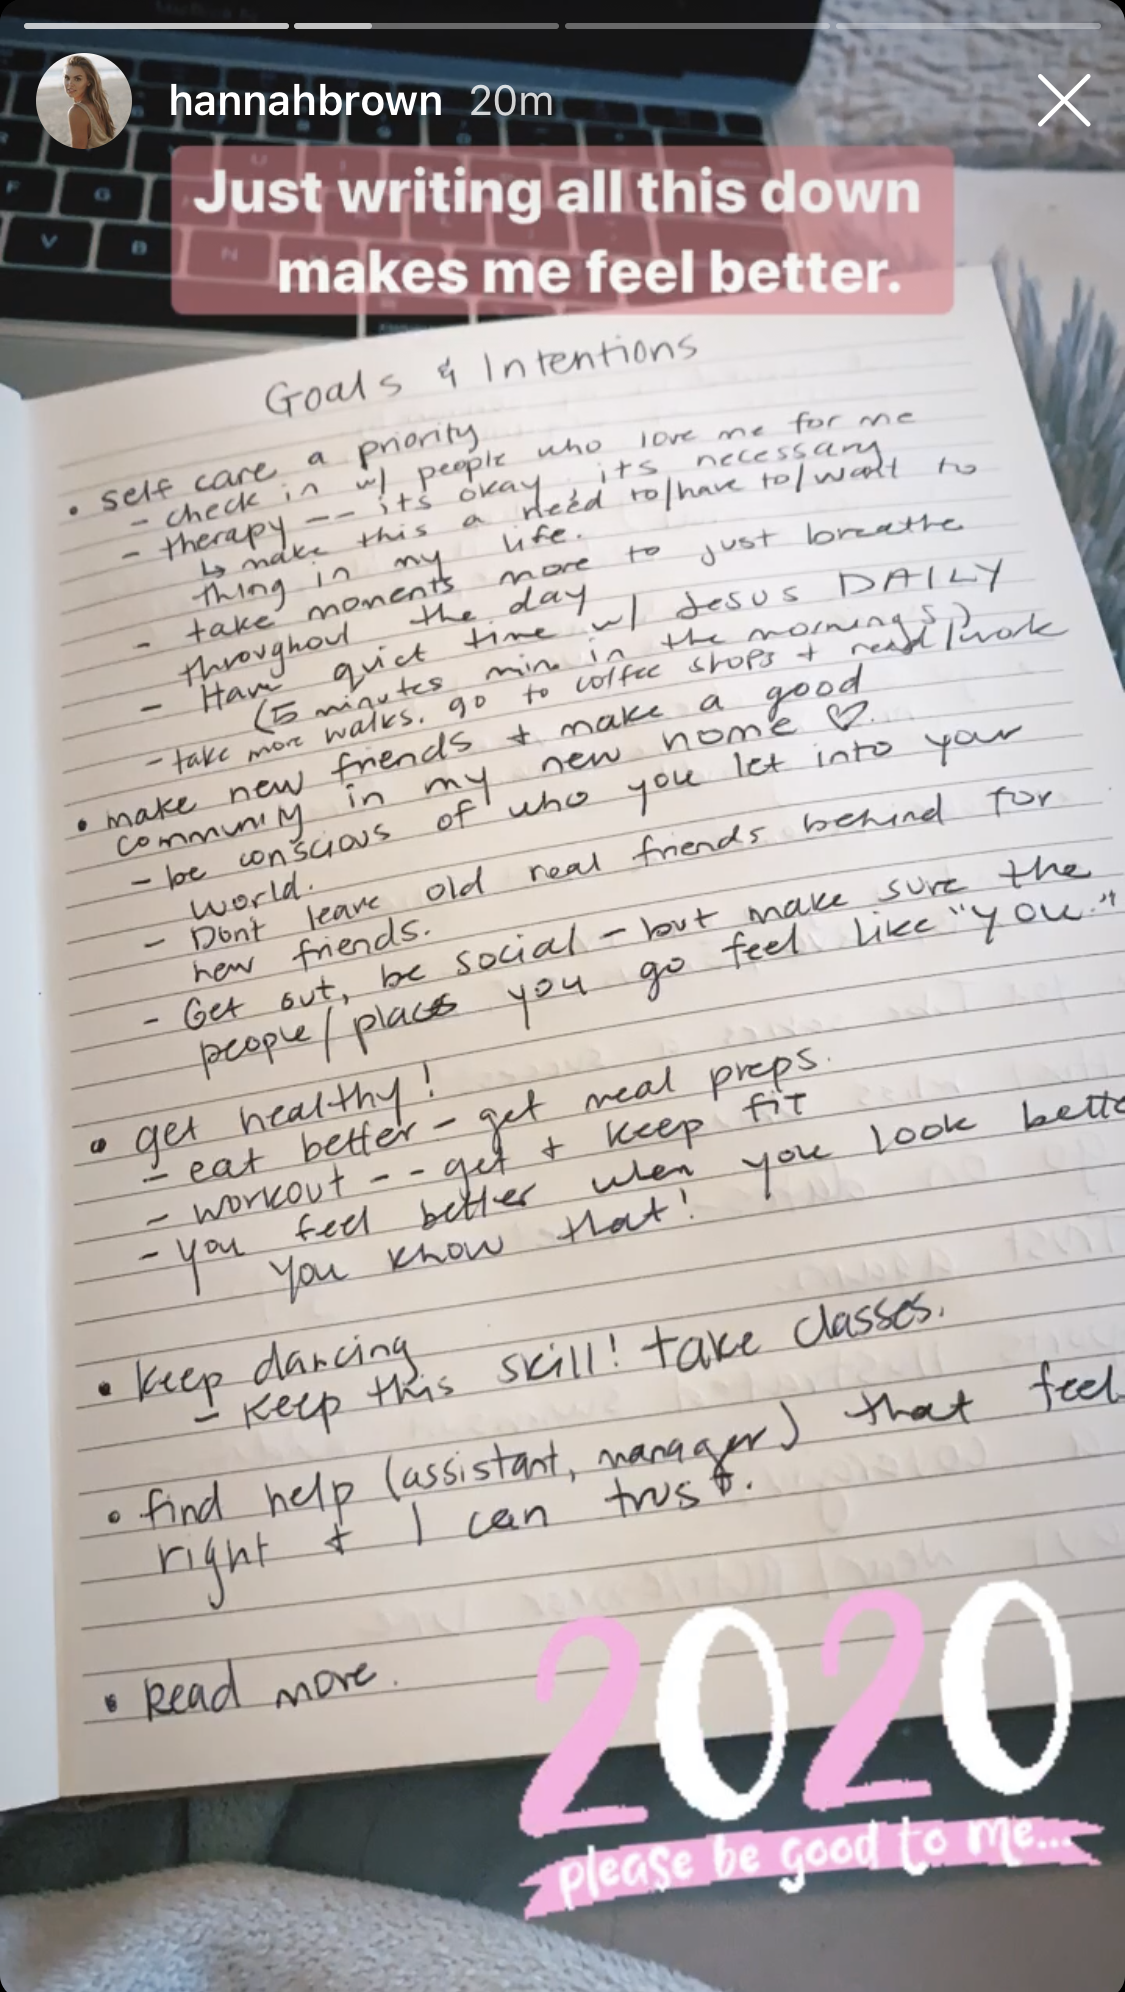 hannahbrown 20m
Just writing all this down
makes me feel better.
Goals & Intentions
• self care a priority
- check in w/ people who love me for me
- therapy -- its okay, its necessary
↳ make this a need to/have to/want to
thing in my life.
- take moments more to just breathe
throughout the day
- Have quiet time w/ Jesus DAILY
(5 minutes min in the mornings)
- take more walks. go to coffee shops + read/work
• make new friends + make a good
community in my new home ♡.
- be conscious of who you let into your
world.
- Dont leave old real friends behind for
new friends.
- Get out, be social - but make sure the
people/places you go feel like "you."
• get healthy!
- eat better - get meal preps.
- workout -- get + keep fit
- you feel better when you look bette
you know that!
• keep dancing
- keep this skill! take classes.
• find help (assistant, manager) that feel
right + I can trust.
• Read more.
2020
please be good to me...
F G
V B N